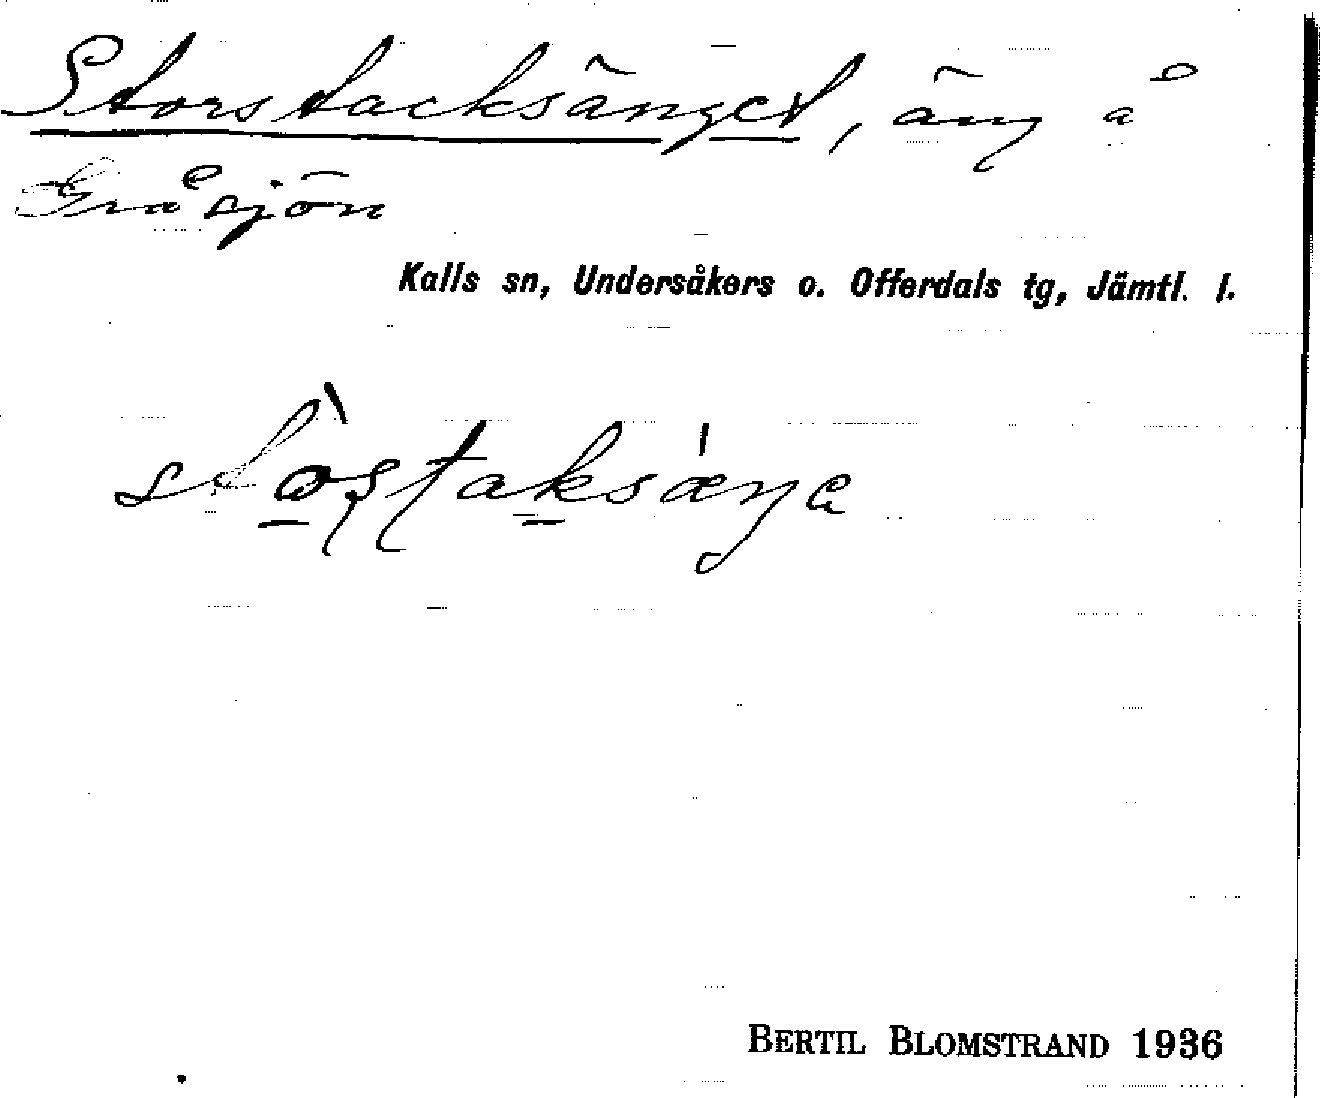 Storstacksänget, äng å
Gråsjön
Kalls sn, Undersåkers o. Offerdals tg, Jämtl. l.
BERTIL BLOMSTRAND 1936